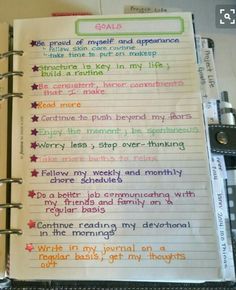 GOALS
Be proud of myself and appearance
Follow skin care routine
take time to put on makeup
Structure is key in my life;
build a routine
Be consistent, honor commitments
that I make
Read more
Continue to push beyond my fears
Enjoy the moment, be spontaneous
Worry less, stop over-thinking
Take more baths to relax
Follow my weekly and monthly
chore schedules
Do a better job communicating with
my friends and family on a
regular basis
Continue reading my devotional
in the mornings
Write in my journal on a
regular basis, get my thoughts
out
Project Life